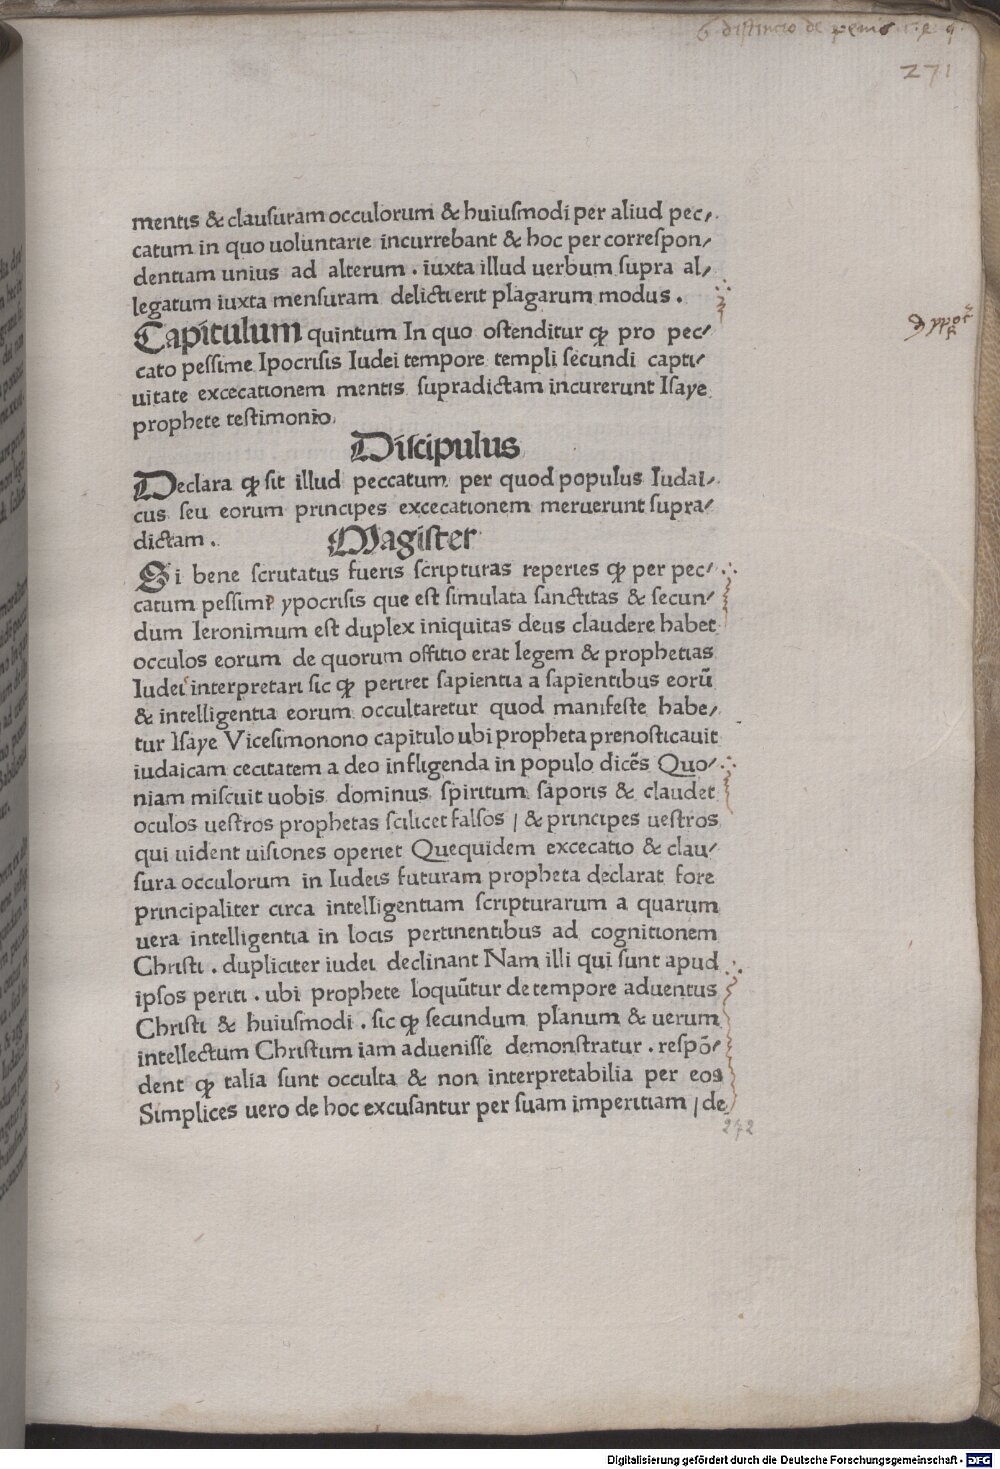 6 distinctio de penis
271
mentis & clausuram occulorum & huiusmodi per aliud pec⸗
catum in quo uoluntarie incurrebant & hoc per correspon⸗
dentiam unius ad alterum . iuxta illud uerbum supra al⸗
legatum iuxta mensuram delicti erit plagarum modus .
Capitulum quintum In quo ostenditur ꝙ pro pec⸗
cato pessime Ipocrisis Iudei tempore templi secundi capti⸗
uitate excecationem mentis supradictam incurerunt Isaye
prophete testimonio.
Discipulus
Declara ꝙ sit illud peccatum per quod populus Iudai⸗
cus seu eorum principes excecationem meruerunt supra⸗
dictam . Magister
Si bene scrutatus fueris scripturas reperies ꝙ per pec⸗
catum pessime ypocrisis que est simulata sanctitas & secun⸗
dum Ieronimum est duplex iniquitas deus claudere habet
occulos eorum de quorum offitio erat legem & prophetias
Iudei interpretari sic ꝙ periret sapientia a sapientibus eorū
& intelligentia eorum occultaretur quod manifeste habe⸗
tur Isaye Vicesimonono capitulo ubi propheta prenosticauit
iudaicam cecitatem a deo infligenda in populo dicēs Quo⸗
niam miscuit uobis dominus spiritum saporis & claudet
oculos uestros prophetas scilicet falsos / & principes uestros
qui uident uisiones operiet Quequidem excecatio & clau⸗
sura occulorum in Iudeis futuram propheta declarat fore
principaliter circa intelligentiam scripturarum a quarum
uera intelligentia in locis pertinentibus ad cognitionem
Christi . dupliciter iudei declinant Nam illi qui sunt apud
ipsos periti . ubi prophete loquūtur de tempore aduentus
Christi & huiusmodi . sic ꝙ secundum planum & uerum
intellectum Christum iam aduenisse demonstratur . respō⸗
dent ꝙ talia sunt occulta & non interpretabilia per eos
Simplices uero de hoc excusantur per suam imperitiam / de
272
Digitalisierung gefördert durch die Deutsche Forschungsgemeinschaft - DFG